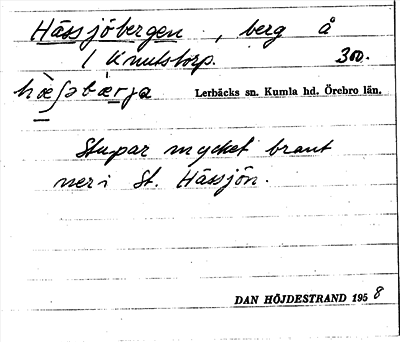 Hässjöbergen, berg å
1 Knutstorp. 300.
Lerbäcks sn. Kumla hd. Örebro län.
Stupar mycket brant
ner i St. Hässjön.
DAN HÖJDESTRAND 1958